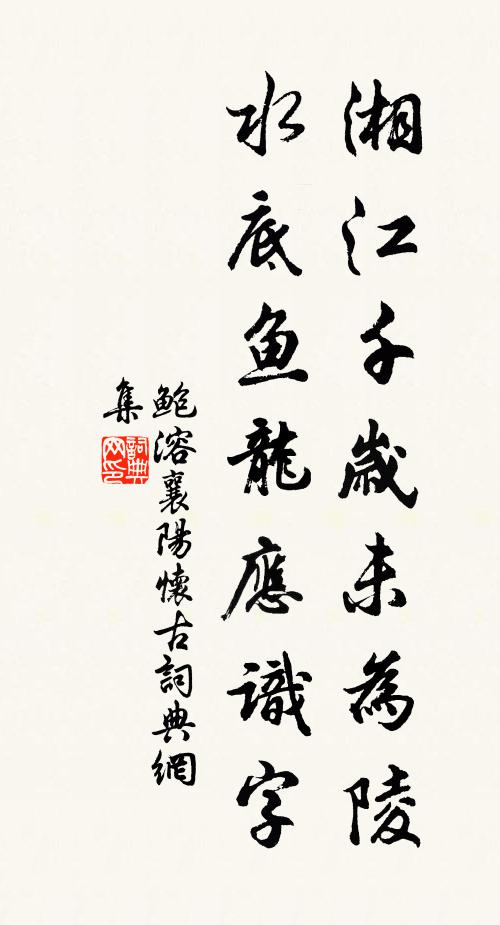 湘江千歲未為陵
水底魚龍應識字
鲍溶襄陽懷古詞典網
集
詞典
网印